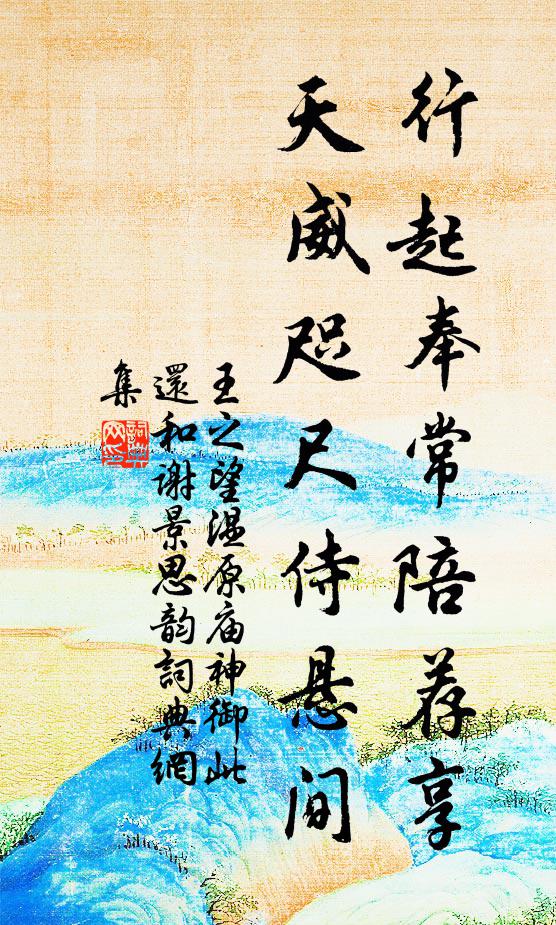 行起奉常陪荐享
天威咫尺侍悬间
王之望温原庙神御此
還和谢景思韵詞典網
集